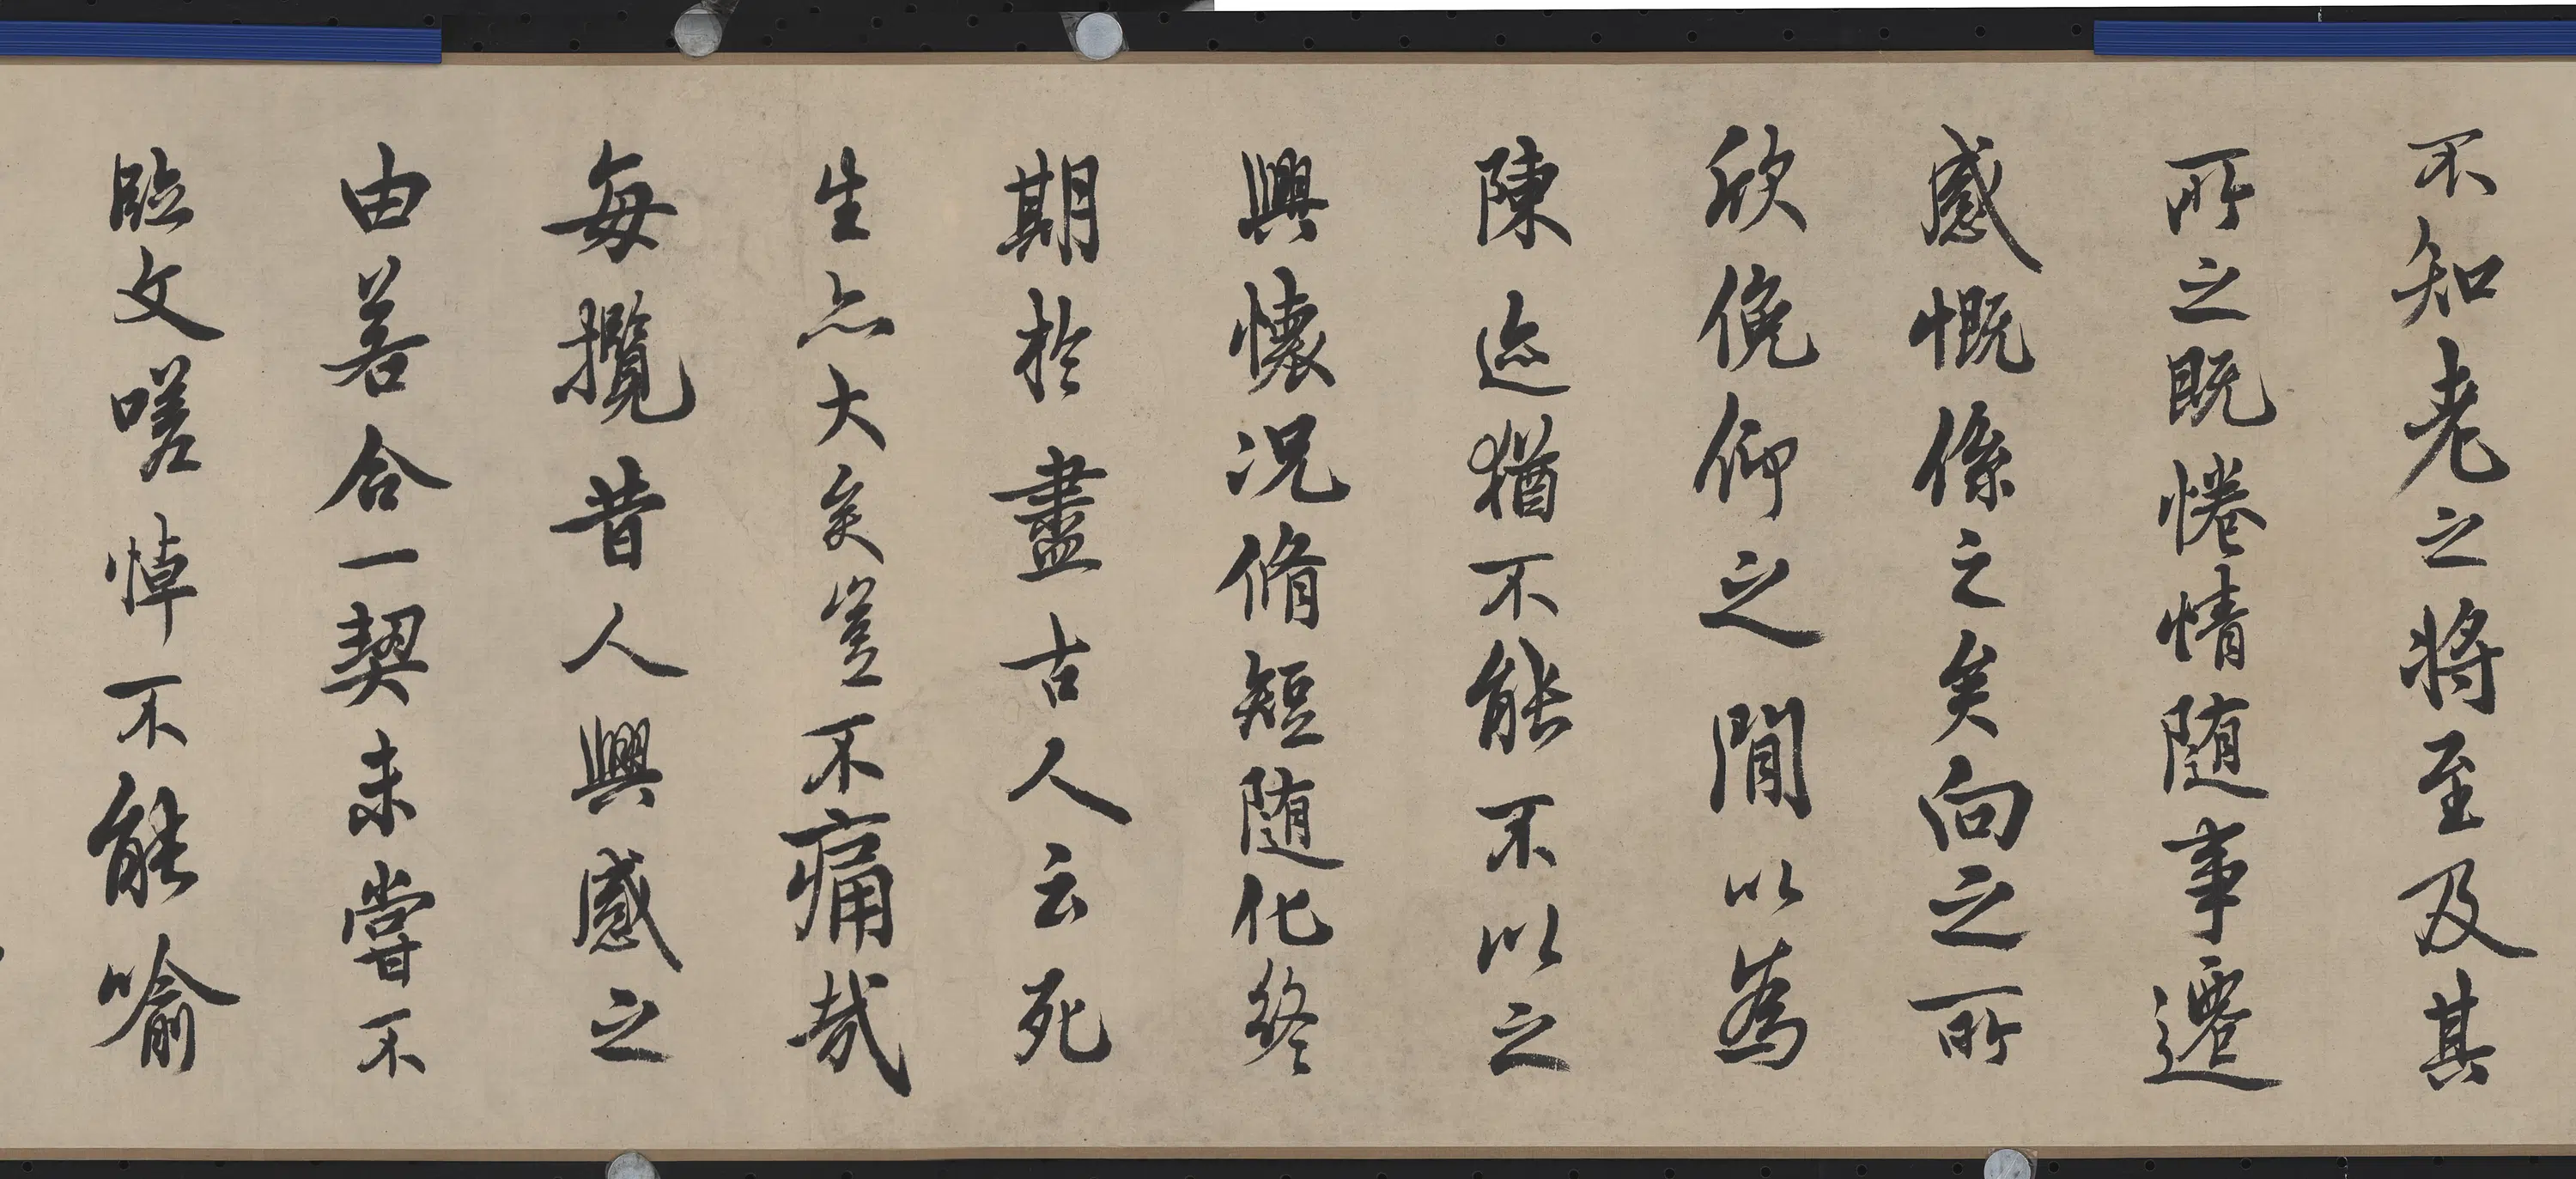 不知老之將至及其
所之既惓情随事遷
感慨係之矣向之所
欣俛仰之閒以為
陳迹猶不能不以之
興懷況脩短随化終
期於盡古人云死
生亦大矣豈不痛哉
每攬昔人興感之
由若合一契未嘗不
臨文嗟悼不能喻